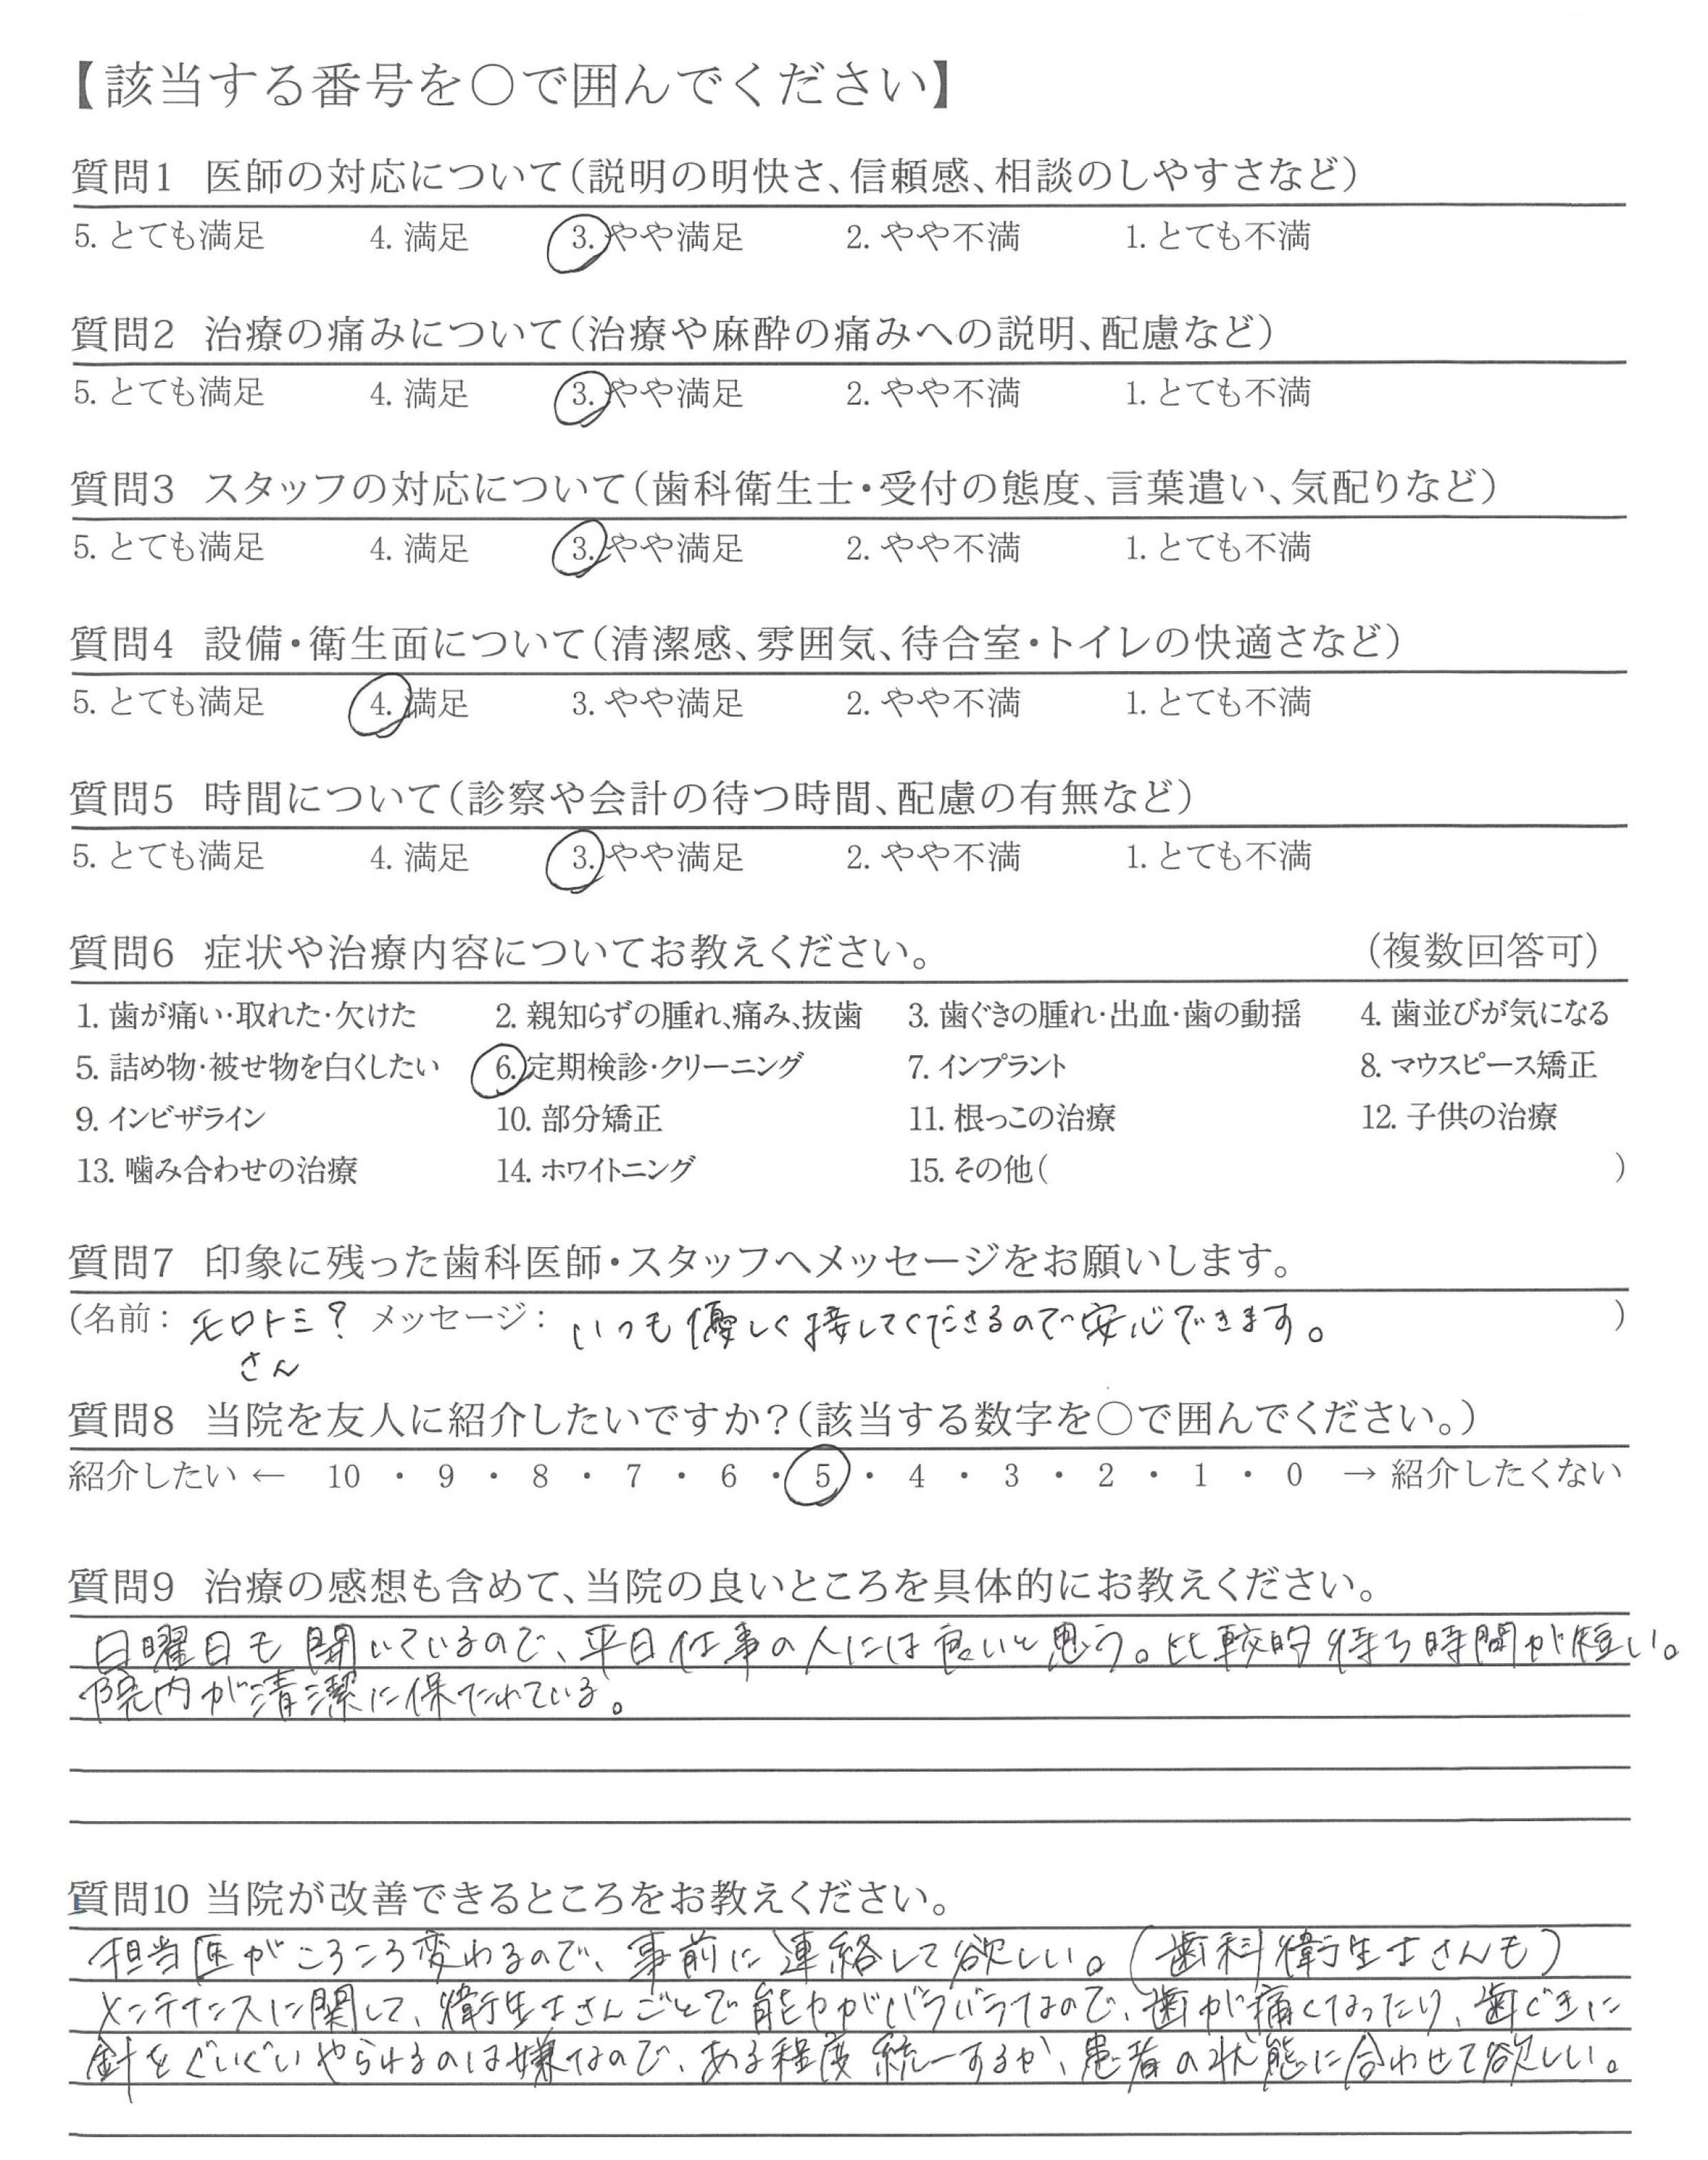 【該当する番号を〇で囲んでください】
質問1 医師の対応について(説明の明快さ、信頼感、相談のしやすさなど)
5. とても満足 4. 満足 3. やや満足 2. やや不満 1. とても不満
質問2 治療の痛みについて(治療や麻酔の痛みへの説明、配慮など)
5. とても満足 4. 満足 3. やや満足 2. やや不満 1. とても不満
質問3 スタッフの対応について(歯科衛生士・受付の態度、言葉遣い、気配りなど)
5. とても満足 4. 満足 3. やや満足 2. やや不満 1. とても不満
質問4 設備・衛生面について(清潔感、雰囲気、待合室・トイレの快適さなど)
5. とても満足 4. 満足 3. やや満足 2. やや不満 1. とても不満
質問5 時間について(診察や会計の待つ時間、配慮の有無など)
5. とても満足 4. 満足 3. やや満足 2. やや不満 1. とても不満
質問6 症状や治療内容についてお教えください。 (複数回答可)
1. 歯が痛い・取れた・欠けた 2. 親知らずの腫れ、痛み、抜歯 3. 歯ぐきの腫れ・出血・歯の動揺 4. 歯並びが気になる
5. 詰め物・被せ物を白くしたい 6. 定期検診・クリーニング 7. インプラント 8. マウスピース矯正
9. インビザライン 10. 部分矯正 11. 根っこの治療 12. 子供の治療
13. 噛み合わせの治療 14. ホワイトニング 15. その他( )
質問7 印象に残った歯科医師・スタッフへメッセージをお願いします。
(名前: モロトミ? メッセージ: いつも優しく接してくださるので安心できます。 )
さん
質問8 当院を友人に紹介したいですか?(該当する数字を〇で囲んでください。)
紹介したい ← 10 ・ 9 ・ 8 ・ 7 ・ 6 ・ 5 ・ 4 ・ 3 ・ 2 ・ 1 ・ 0 → 紹介したくない
質問9 治療の感想も含めて、当院の良いところを具体的にお教えください。
日曜日も開いているので、平日仕事の人には良いと思う。比較的待ち時間が短い。
院内が清潔に保たれている。
質問10 当院が改善できるところをお教えください。
担当医がころころ変わるので、事前に連絡して欲しい。(歯科衛生士さんも)
メンテナンスに関して、衛生士さんごとで能力がバラバラなので、歯が痛くなったり、歯ぐきに
針をぐいぐいやられるのは嫌なので、ある程度統一するか、患者の状態に合わせて欲しい。